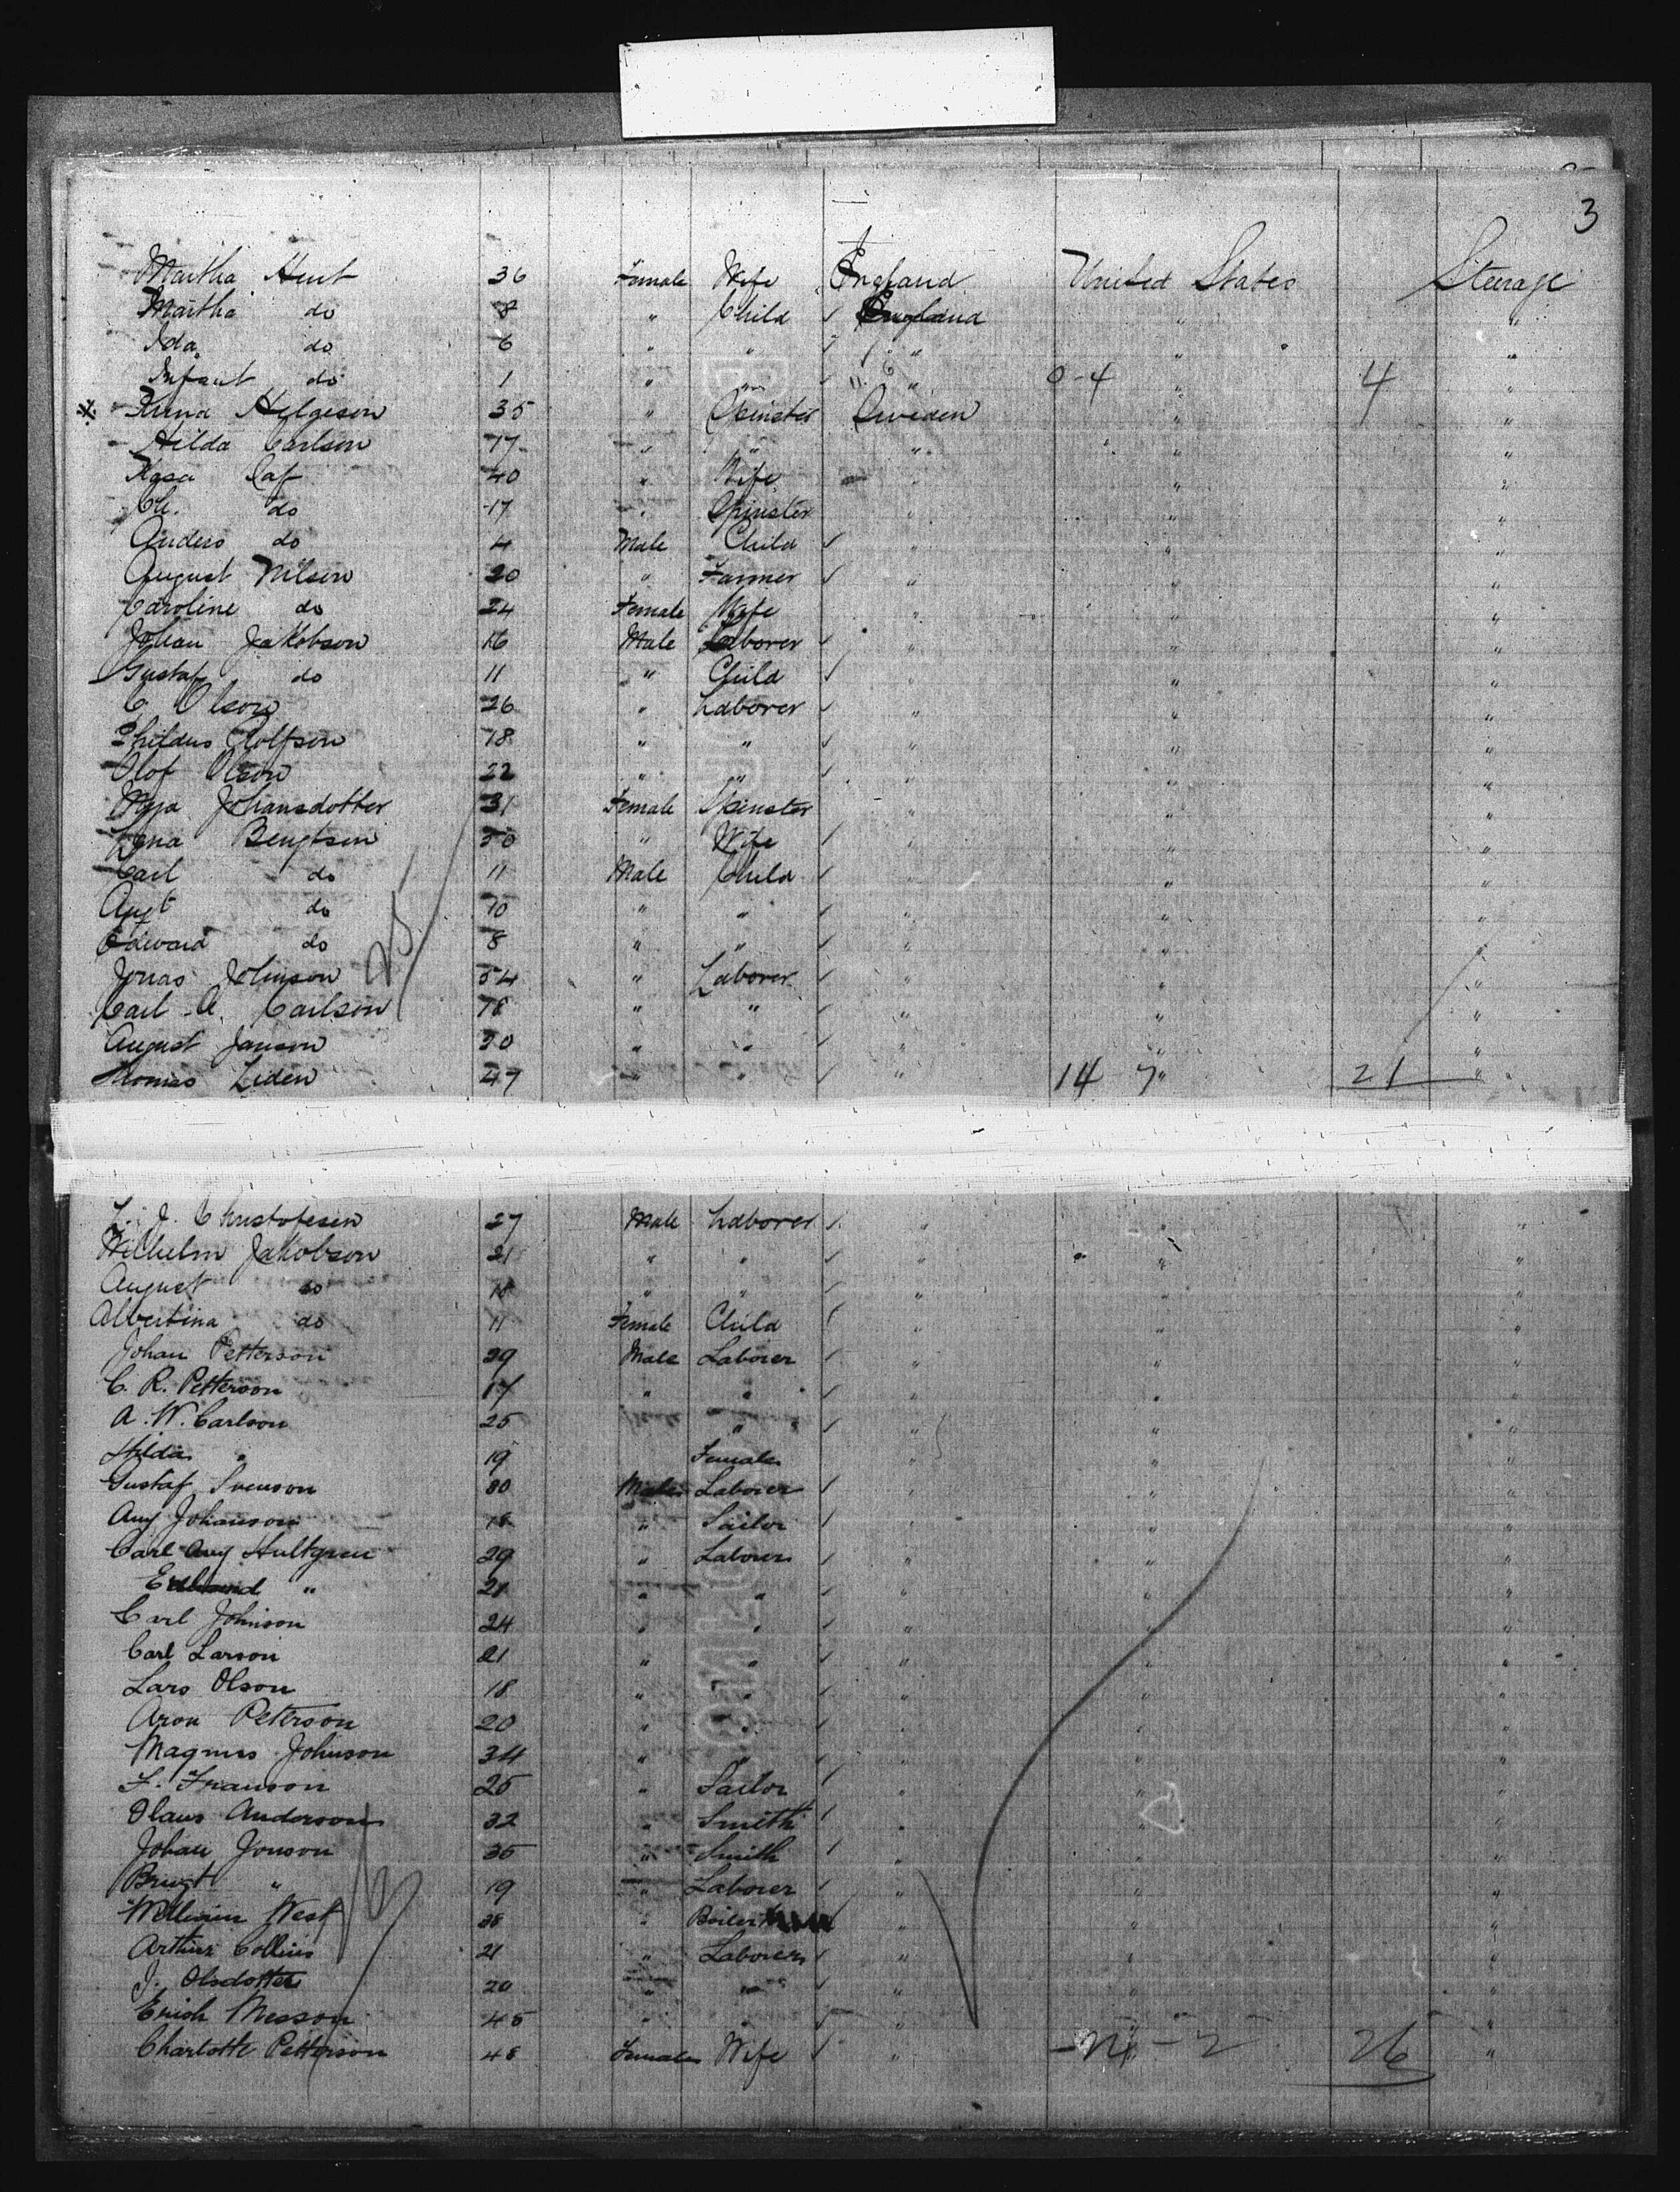 3
Martha Hunt 36 Female Wife England United States Steerage
Martha do 8 " Child England " "
Ida do 6 " " " " "
Infant do 1 " " " 0-4 " 4 "
Anna Helgeson 35 " Spinster Sweden " "
Hilda Carlson 17 " " " " "
40 " Wife " " "
do 17 " Spinster " " "
Anders do 4 Male Child " " "
August Nilson 20 " Farmer " " "
Caroline do 24 Female Wife " " "
Johan Jakobson 16 Male Laborer " " "
Gustaf do 11 " Child " " "
C Olson 26 " Laborer " " "
Rolfson 18 " " " " "
Olof Olson 22 " " " " "
Maja Johansdotter 31 Female Spinster " " "
Lena Bengtson 50 " Wife " " "
Carl do 11 Male Child " " "
Augt do 10 " " " " "
Edward do 8 " " " " "
Jonas Johnson 54 " Laborer " " "
Carl A. Carlson 18 " " " " "
August Janson 20 " " " " "
Thomas Liden 47 " " " 14 7 " 21 "
25
L. J. Christofesen 27 Male Laborer " " "
Wilhelm Jakobson 21 " " " " "
August do 18 " " " " "
Albertina do 11 Female Child " " "
Johan Petterson 29 Male Laborer " " "
C. R. Petterson 17 " " " " "
A. W. Carlson 25 " " " "
Hilda " 19 Female " " "
Gustaf Svenson 30 Male Laborer " " "
Aug Johanson 18 " Sailor " " "
Carl Aug Hultgren 29 " Laborer " " "
" 21 " " " " "
Carl Johnson 24 " " " " "
Carl Larson 21 " " " " "
Lars Olson 18 " " " " "
Aron Peterson 20 " " " " "
Magnus Johnson 34 " " " " "
F. Franson 25 " Sailor " " "
Olaus Anderson 32 " Smith " " "
Johan Jonson 35 " Smith " " "
" 19 " Laborer " " "
William West 38 " Boiler " " "
Arthur Collins 21 " Laborer " " "
J. Olsdotter 20 " " " " "
Erich Messon 45 " " " " "
Charlotte Petterson 48 Female Wife " 24 - 2 26 "